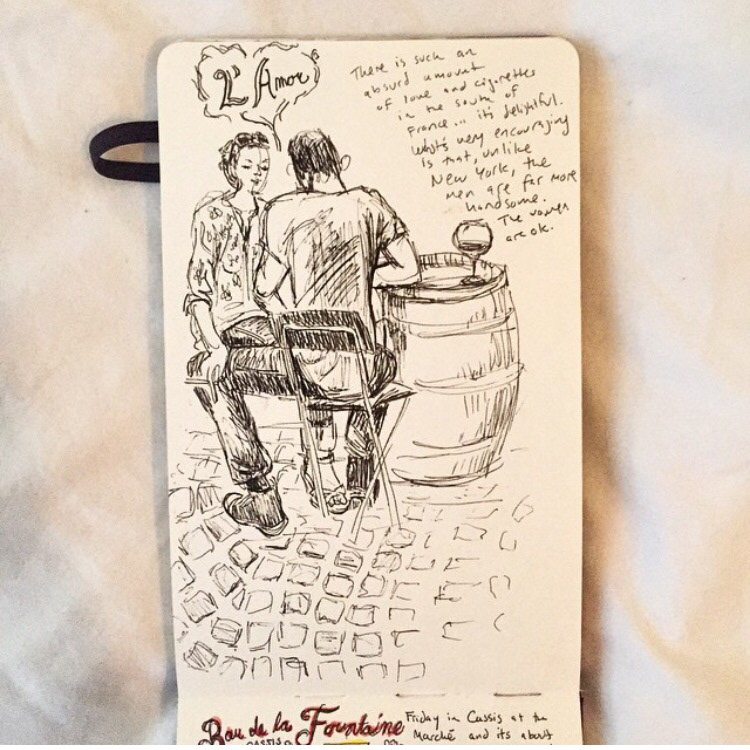 L'Amor
There is such an
absurd amount
of love and cigarettes
in the south of
France... it's delightful.
What's very encouraging
is that, unlike
New York, the
men are far more
handsome.
The women
are ok.
Bar de la Fountaine
CASSIS
Friday in Cassis at the
Marché and its about